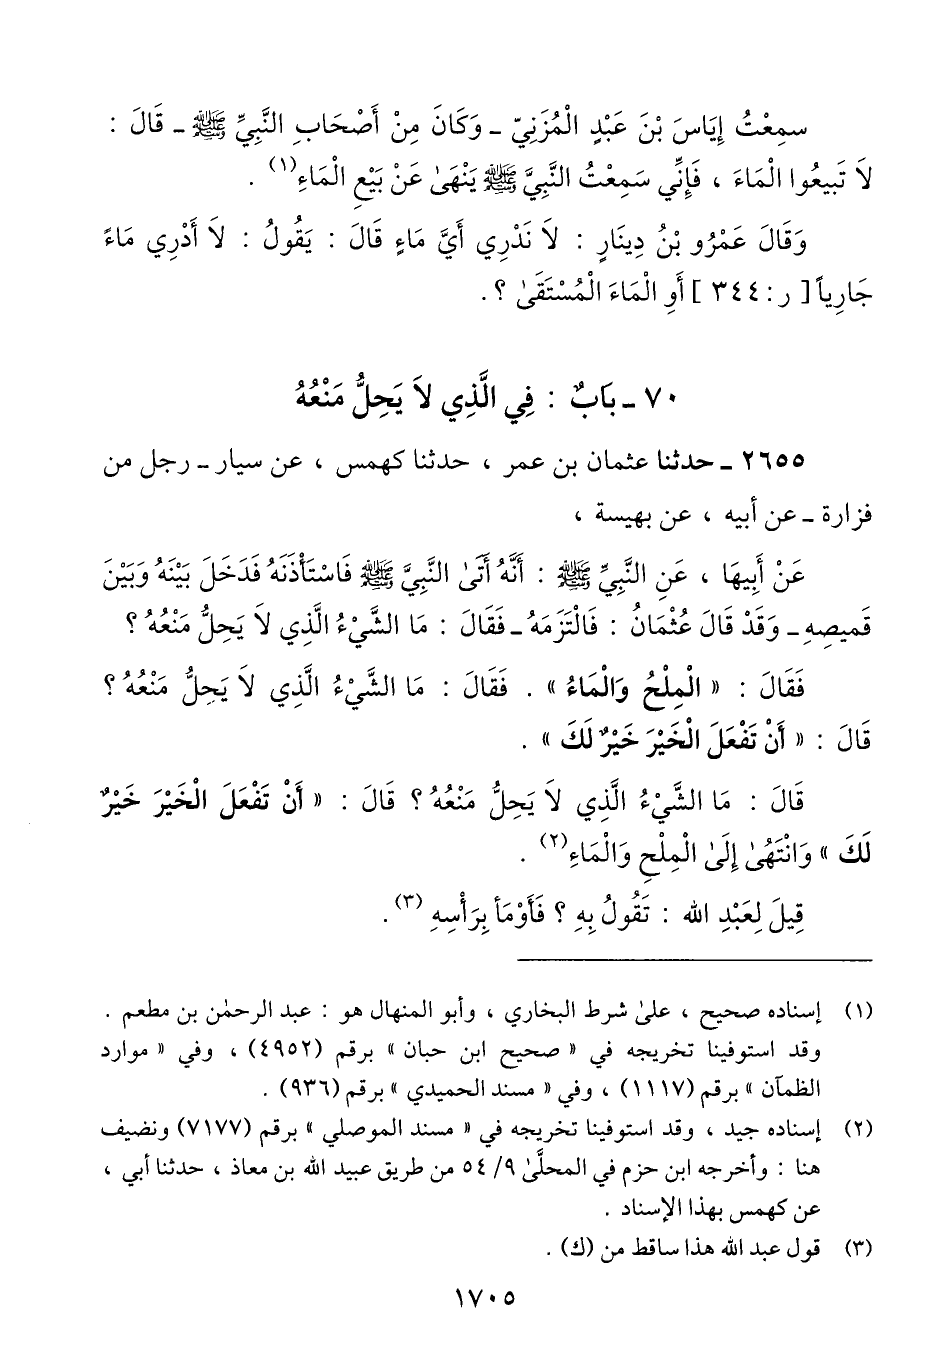 سمِعْتُ إِيَاسَ بْنَ عَبْدٍ الْمُزَنِيّ ـ وَكَانَ مِنْ أَصْحَابِ النَّبِيِّ ﷺ ـ قَالَ :
لاَ تَبيعُوا الْمَاءَ ، فَإِنِّي سَمِعْتُ النَّبِيَّ ﷺ يَنْهَىٰ عَنْ بَيْعِ الْمَاءِ(١) .
وَقَالَ عَمْرُو بْنُ دِينَارٍ : لاَ نَدْرِي أَيَّ مَاءٍ قَالَ : يَقُولُ : لاَ أَدْرِي مَاءً
جَارِياً [ ر : ٣٤٤ ] أَوِ الْمَاءَ الْمُسْتَقَىٰ ؟ .
٧٠ ـ بَابٌ : فِي الَّذِي لاَ يَحِلُّ مَنْعُهُ
٢٦٥٥ ـ حدثنا عثمان بن عمر ، حدثنا كهمس ، عن سيار ـ رجل من
فزارة ـ عن أبيه ، عن بهيسة ،
عَنْ أَبِيهَا ، عَنِ النَّبِيِّ ﷺ : أَنَّهُ أَتَىٰ النَّبِيَّ ﷺ فَاسْتَأْذَنَهُ فَدَخَلَ بَيْنَهُ وَبَيْنَ
قَمِيصِهِ ـ وَقَدْ قَالَ عُثْمَانُ : فَالْتَزَمَهُ ـ فَقَالَ : مَا الشَّيْءُ الَّذِي لاَ يَحِلُّ مَنْعُهُ ؟
فَقَالَ : « الْمِلْحُ وَالْمَاءُ » . فَقَالَ : مَا الشَّيْءُ الَّذِي لاَ يَحِلُّ مَنْعُهُ ؟
قَالَ : « أَنْ تَفْعَلَ الْخَيْرَ خَيْرٌ لَكَ » .
قَالَ : مَا الشَّيْءُ الَّذِي لاَ يَحِلُّ مَنْعُهُ ؟ قَالَ : « أَنْ تَفْعَلَ الْخَيْرَ خَيْرٌ
لَكَ » وَانْتَهَىٰ إِلَىٰ الْمِلْحِ وَالْمَاءِ(٢) .
قِيلَ لِعَبْدِ الله : تَقُولُ بِهِ ؟ فَأَوْمَأَ بِرَأْسِهِ (٣) .
(١) إسناده صحيح ، علىٰ شرط البخاري ، وأبو المنهال هو : عبد الرحمٰن بن مطعم .
وقد استوفينا تخريجه في « صحيح ابن حبان » برقم (٤٩٥٢) ، وفي « موارد
الظمآن » برقم (١١١٧) ، وفي « مسند الحميدي » برقم (٩٣٦) .
(٢) إسناده جيد ، وقد استوفينا تخريجه في « مسند الموصلي » برقم (٧١٧٧) ونضيف
هنا : وأخرجه ابن حزم في المحلَّىٰ ٩/ ٥٤ من طريق عبيد الله بن معاذ ، حدثنا أبي ،
عن كهمس بهذا الإسناد .
(٣) قول عبد الله هذا ساقط من (ك) .
١٧٠٥